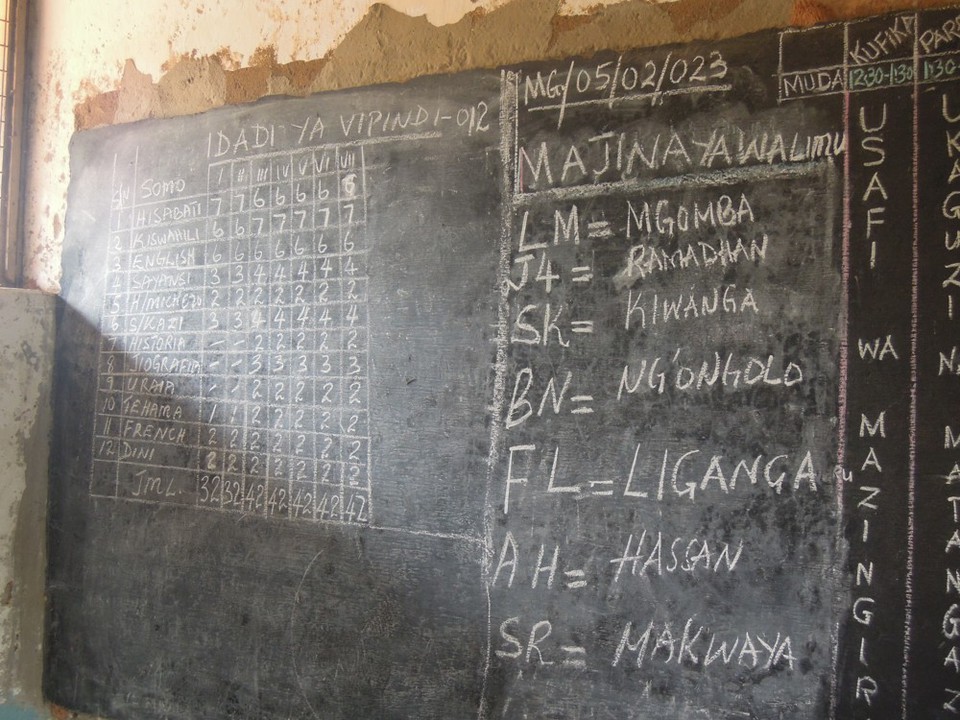 IDADI YA VIPINDI - 012
S/N SOMO I II III IV V VI VII
HISABATI 7 7 6 6 6 6 6
2 KISWAHILI 6 6 7 7 7 7 7
3 ENGLISH 6 6 6 6 6 6 6
4 SAYANSI 3 3 4 4 4 4 4
5 H/MICHEZO 2 2 2 2 2 2 2
6 S/KAZI 3 3 4 4 4 4 4
7 HISTORIA - - 2 2 2 2 2
8 JIOGRAFIA - - 3 3 3 3 3
9 URAIA - - 2 2 2 2 2
10 TEHAMA 1 1 2 2 2 2 2
11 FRENCH 2 2 2 2 2 2 2
12 DINI 2 2 2 2 2 2 2
JML. 32 32 42 42 42 42 42
MG/05/02/023
MAJINA YA WALIMU
LM = MGOMBA
J4 = RAMADHAN
SK = KIWANGA
BN = NG'ONGOLO
FL = LIGANGA
AH = HASSAN
SR = MAKWAYA
MUDA
KUFIKA
12:30-1:30
USAFI WA MAZINGIR
PARE
1:30-
UKAGUZI NA MATANGAZ